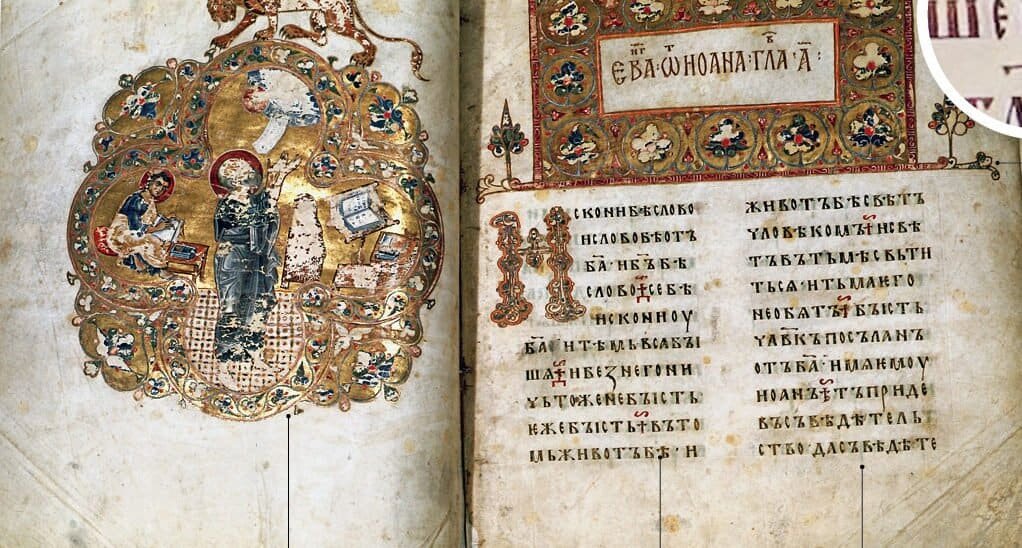 ЕВА · ѾИОАНА · ГЛА · А҃ ·
ИСКОНИ БѢ СЛОВО
И СЛОВО БѢ ОТЪ
Б҃А · И Б҃Ъ БѢ
СЛОВО · СЕ БѢ
ИСКОНИ ОУ
Б҃А · И ТѢМЬ ВСА БꙐ
ШѦ · И БЕЗ НЕГО НИ
ЧЬТОЖЕ НЕ БꙐСТЬ
ЕЖЕ БꙐСТЬ · ВЪ ТО
МЬ ЖИВОТЪ БѢ · И
ЖИВОТЪ БѢ СВѢТЪ
ЧЛОВѢКОМЪ · И СВѢ
ТЪ ВЪ ТЬМѢ СВЬТИ
ТЬСѦ · И ТЬМА ЕГО
НЕ ОБѦТЪ · БꙐСТЬ
ЧЛ҃ВКЪ ПОСЪЛАНЪ
ОТЪ Б҃А · ИМѦ ЕМОУ
ИОАНЪ · ТЪ ПРИДЕ
ВЪ СЪВѢДѢТЕЛЬ
СТВО · ДА СЪВѢДѢТЕ